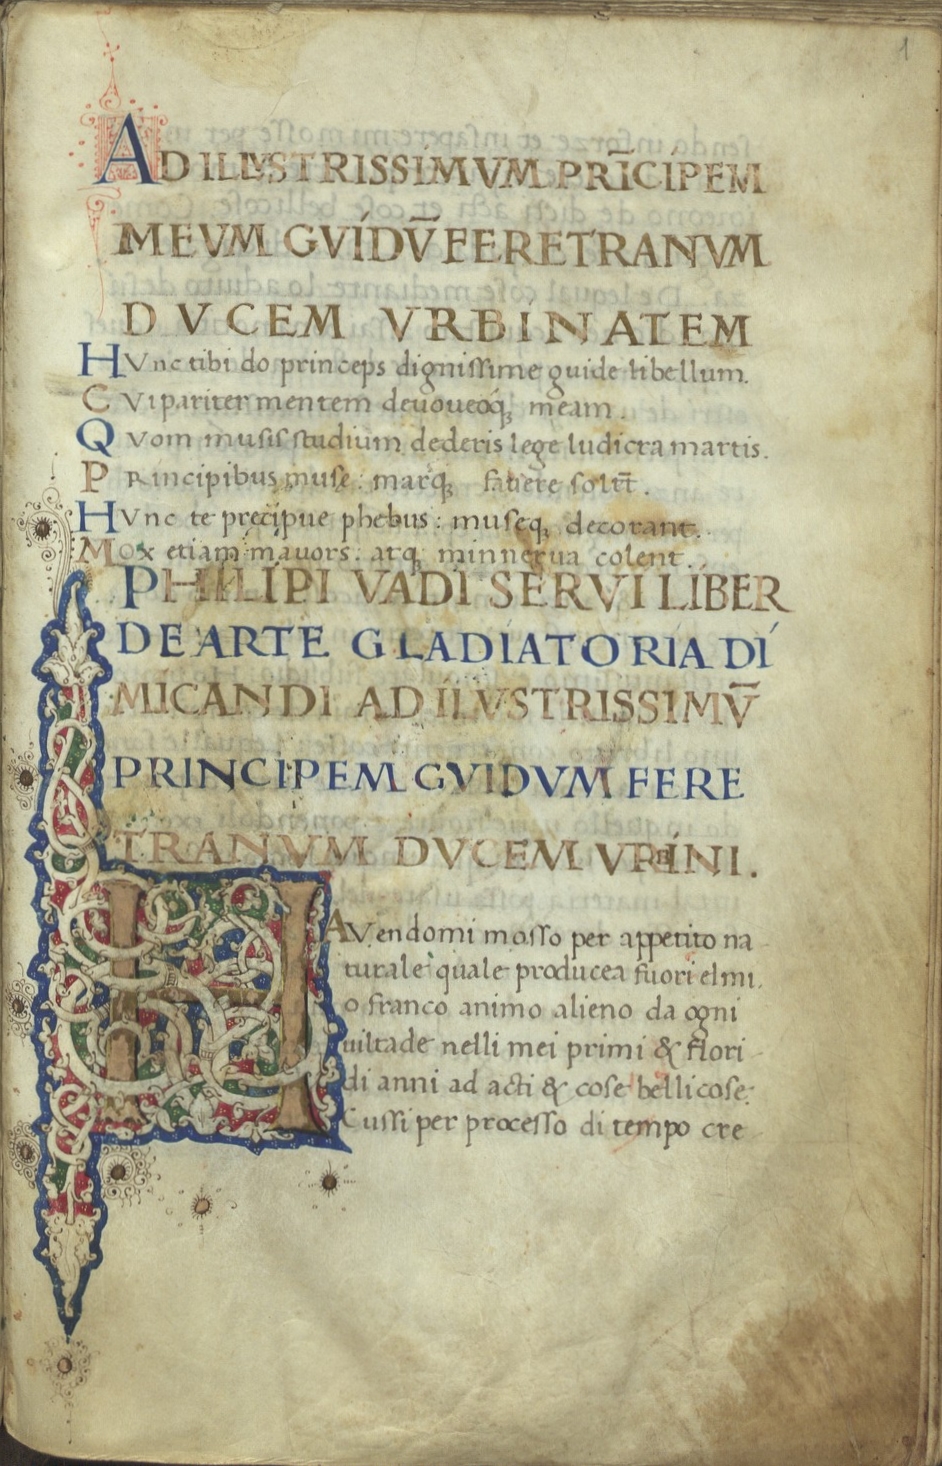 1
AD ILLVSTRISSIMVM PRĪCIPEM
MEVM GVÍDV̄ FERETRANVM
DVCEM VRBINATEM
HVnc tibi do princeps dignissime guide libellum.
CVi pariter mentem deuoueoq́ꝫ meam.
QVom musis studium dederis lege ludicra martis.
PRincipibus muse: marq́ꝫ fauere solūt.
HVnc te precipue phebus: museqꝫ decorant.
Mox etiam mauors: atqꝫ minnerua colent.
PHILIPI VADI SERVI LÍBER
DE ARTE GLADIATORIA DÍ
MICANDI AD ILVSTRISSIMV̄
PRINCIPEM GVIDVM FERE
TRANVM DVCEM VRBÍNI.
HAVendomi mosso per appetito na
turale quale producea fuori el mi
o franco animo alieno da ogni
uiltade nelli mei primi & flori
di anni ad acti & cose bellicose:
Cussi per processo di tempo cre